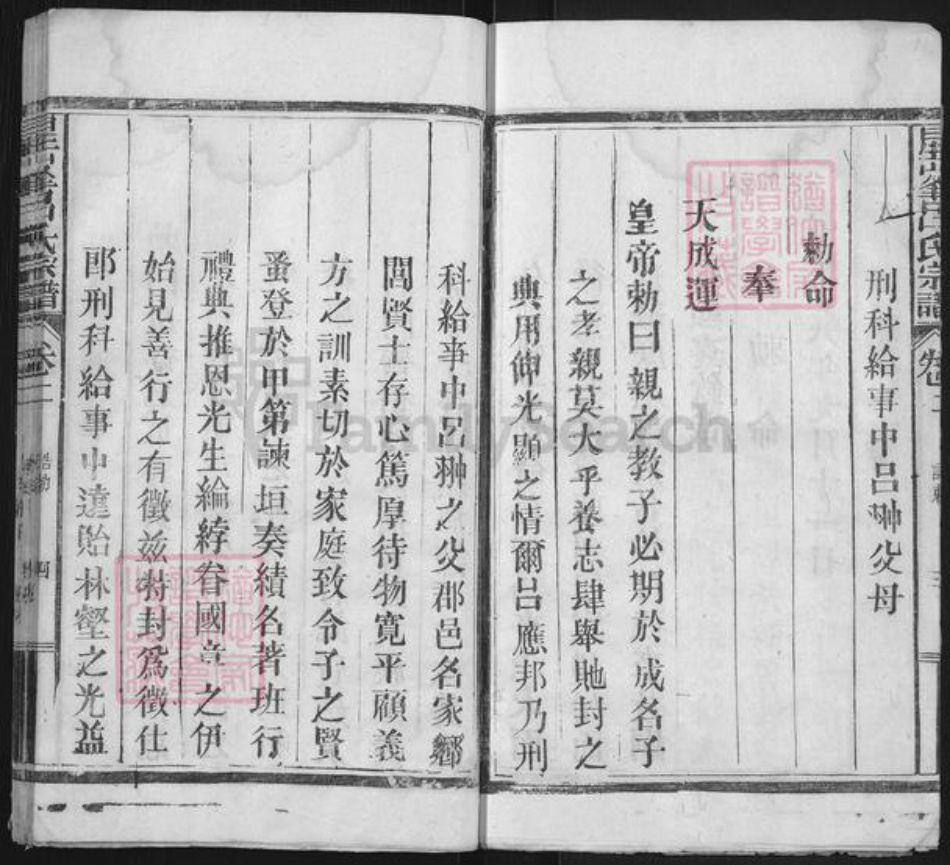 刑科給事中呂翀父母
勅命
奉
天成運
皇帝勅曰親之教子必期於成名子
之孝親莫大乎養志肆舉貤封之
典用伸光顯之情爾呂應邦乃刑
科給事中呂翀之父郡邑名家鄉
閭賢士存心篤厚待物寬平顧義
方之訓素切於家庭致令子之賢
蚤登於甲第諫垣奏績名著班行
禮典推恩光生綸綍眷國章之伊
始見善行之有徵玆特封爲徵仕
郎刑科給事中逹貽林壑之光益
呂氏宗譜
卷二
FamilySearch